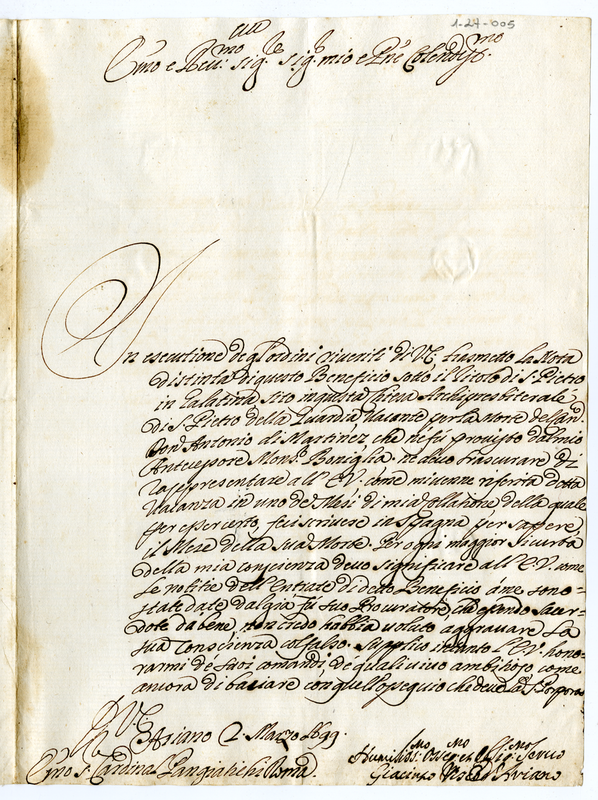 1-27-005
Emo e Rev.mo sig.re sig.r mio e Pne Colendis.mo
In esecutione degl'ordini riveriti di V.E. trasmetto la Nota
distinta di questo Beneficio sotto il titolo di S. Pietro
in sito in questa Chiesa Archipresbiterale
di S. Pietro della Guardia Vacante per la Morte del
Don Antonio di Martinez che ne fu provisto dal mio
Antecessore Mons.r Boniglia. ne devo trascurare di
rappresentare all'E.V. come mi venne riferta detta
Vacanza in uno de Mesi di mia Collatione della quale
per esser certo, feci scrivere in Spagna per sapere
il Mese della sua Morte. Per ogni maggior sicurtà
della mia conscienza devo significare all'E.V. come
le notitie dell'Entrate di detto Beneficio à me sono
state date dal già fù suo Procuratore, che essendo Sacer-
dote da bene, non credo habbia voluto aggravare la
sua Conscienza col falso. Supplico intanto l'E.V. hono-
rarmi de suoi comandi, de quali vivo ambitioso come
ancora di baciare con quell'ossequio che devo la S. Porpora
Di V.E.
Ariano 2 Marzo 1699.
Emo S. Cardinal Panciatichi Roma.
Humiliss.mo Servo
Giacinto Vescovo d'Ariano